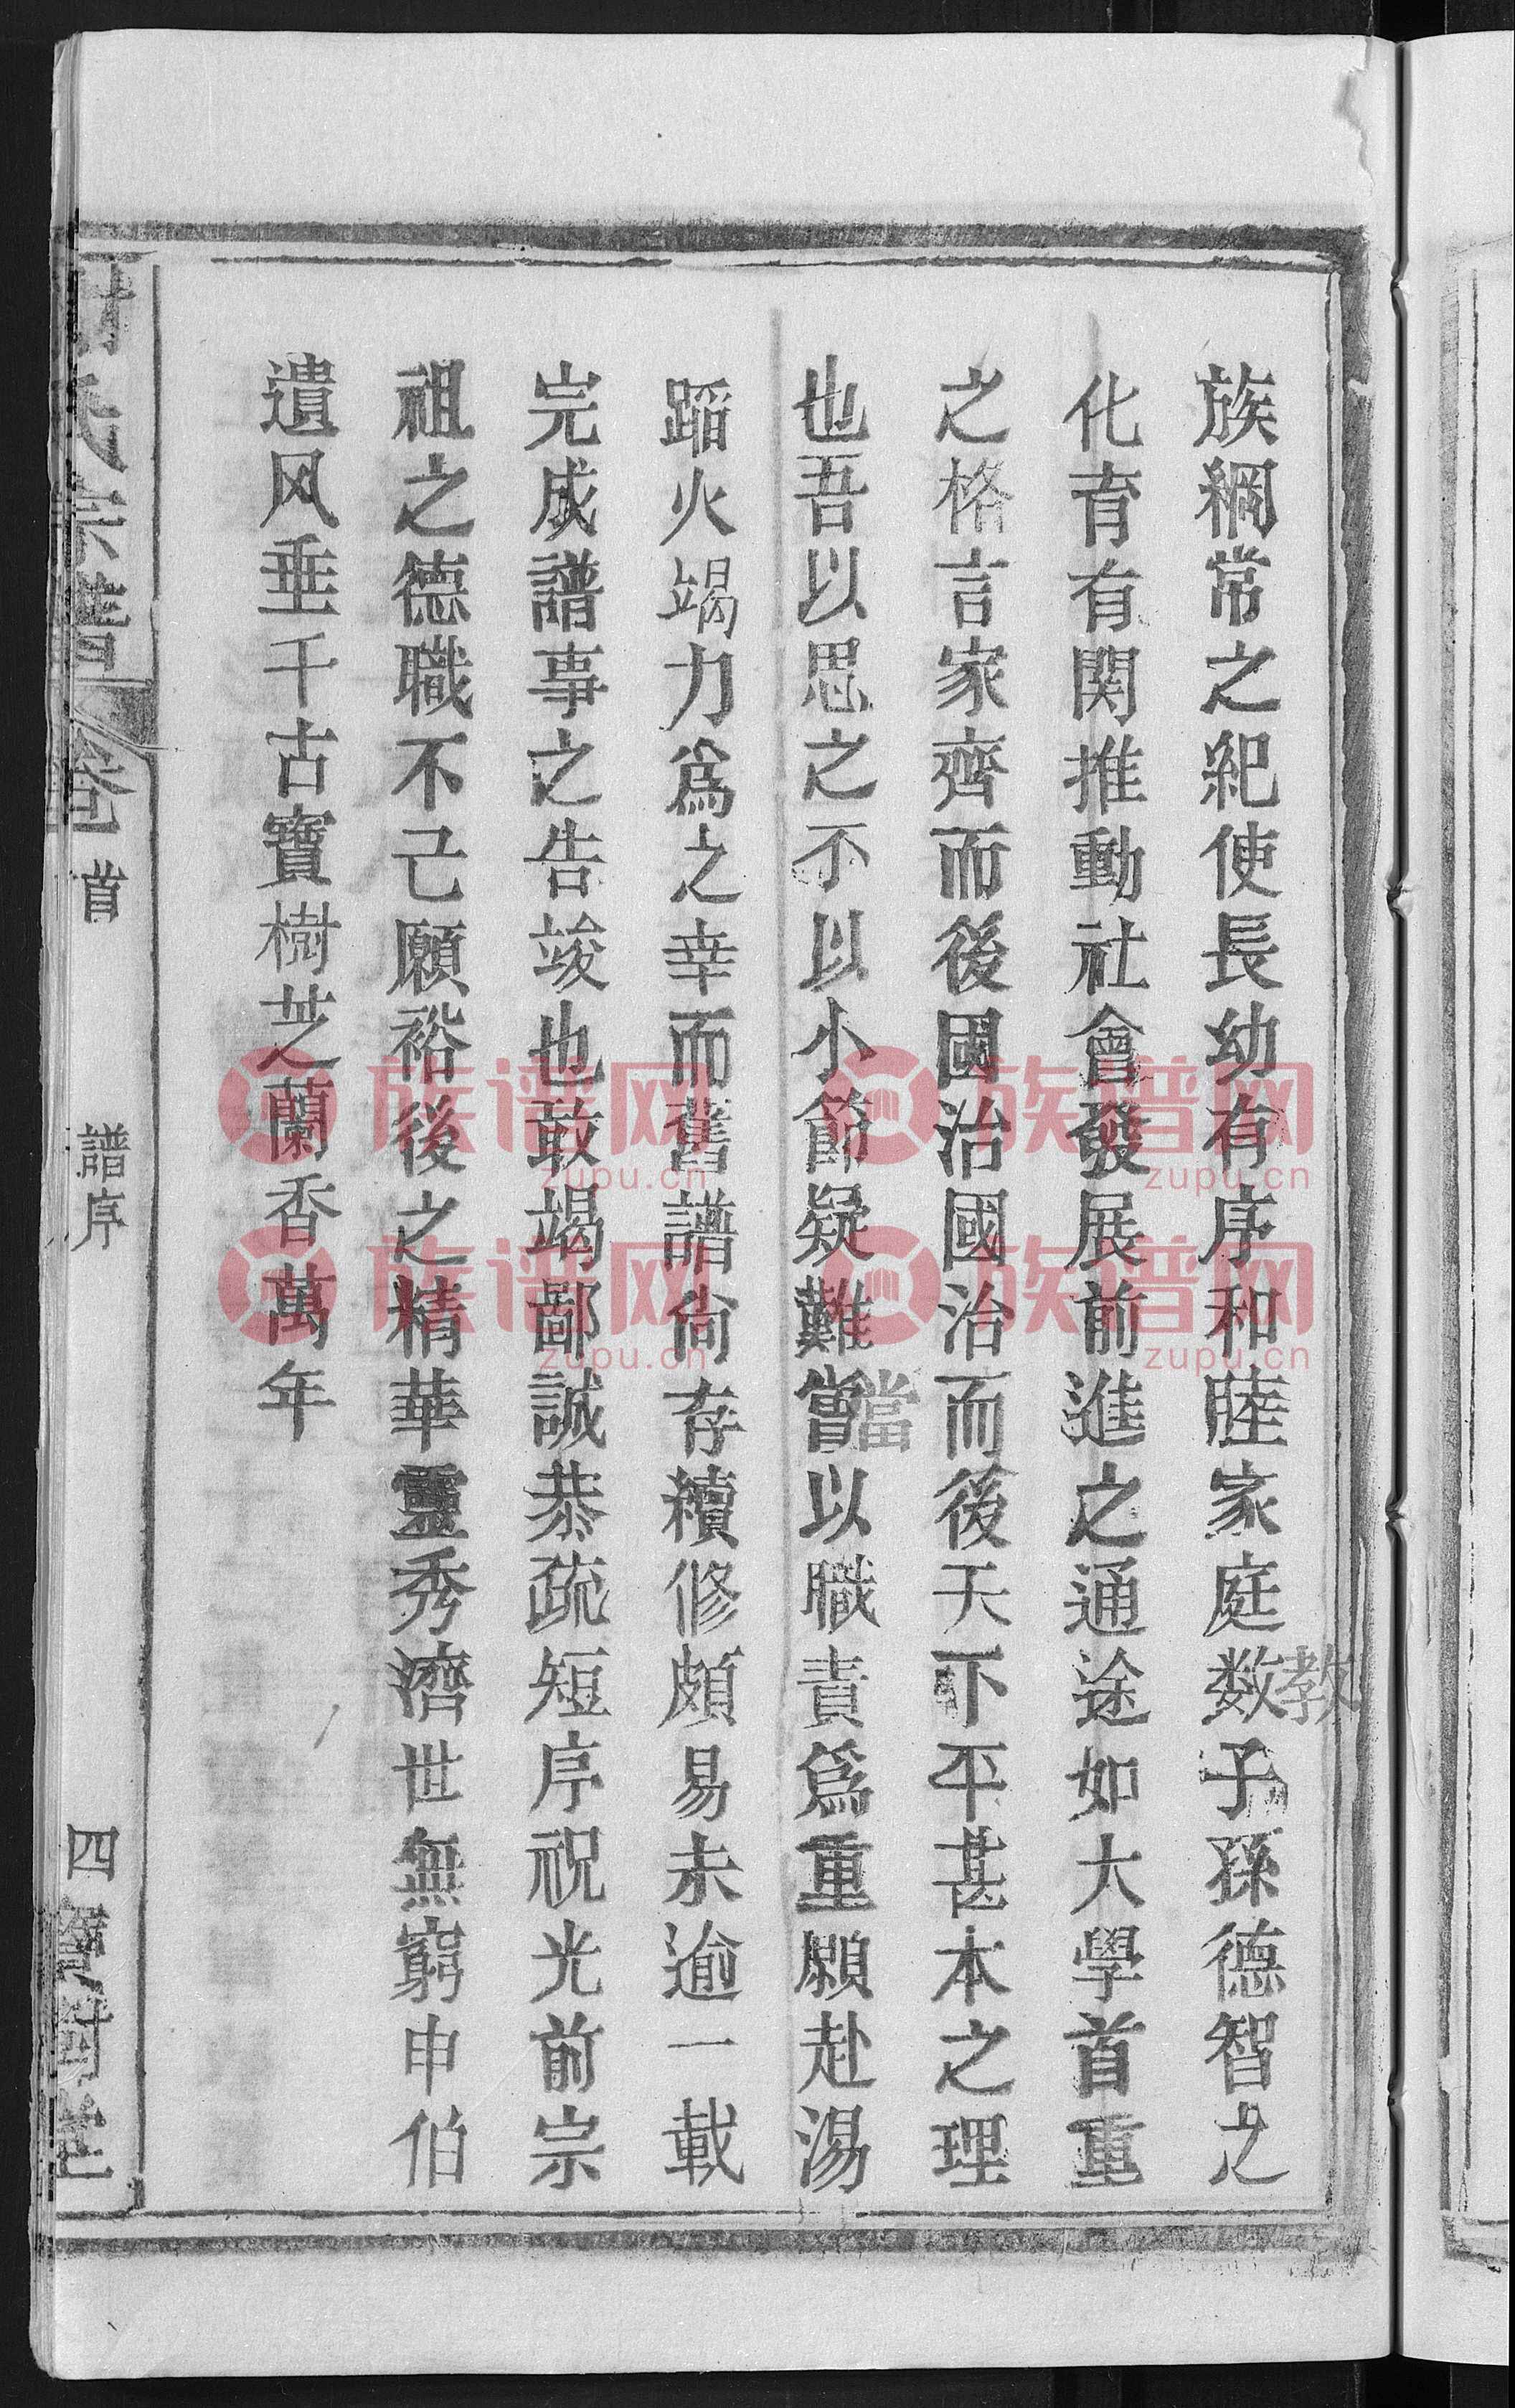 族綱常之紀使長幼有序和睦家庭数教子孫德智之
化育有関推動社會發展前進之通途如大學首重
之格言家齊而後國治國治而後天下平甚本之理
也吾以思之不以小節疑難嘗當以職責爲重願赴湯
蹈火竭力爲之幸而舊譜尙存續修頗易未逾一載
完成譜事之告竣也敢竭鄙誠恭疏短序祝光前宗
祖之德職不己願裕後之精華靈秀濟世無窮申伯
遺风垂千古寶樹芝蘭香萬年
氏宗譜
卷首
譜序
四
寶樹堂
族谱网
zupu.cn
族谱网
zupu.cn
族谱网
zupu.cn
族谱网
zupu.cn